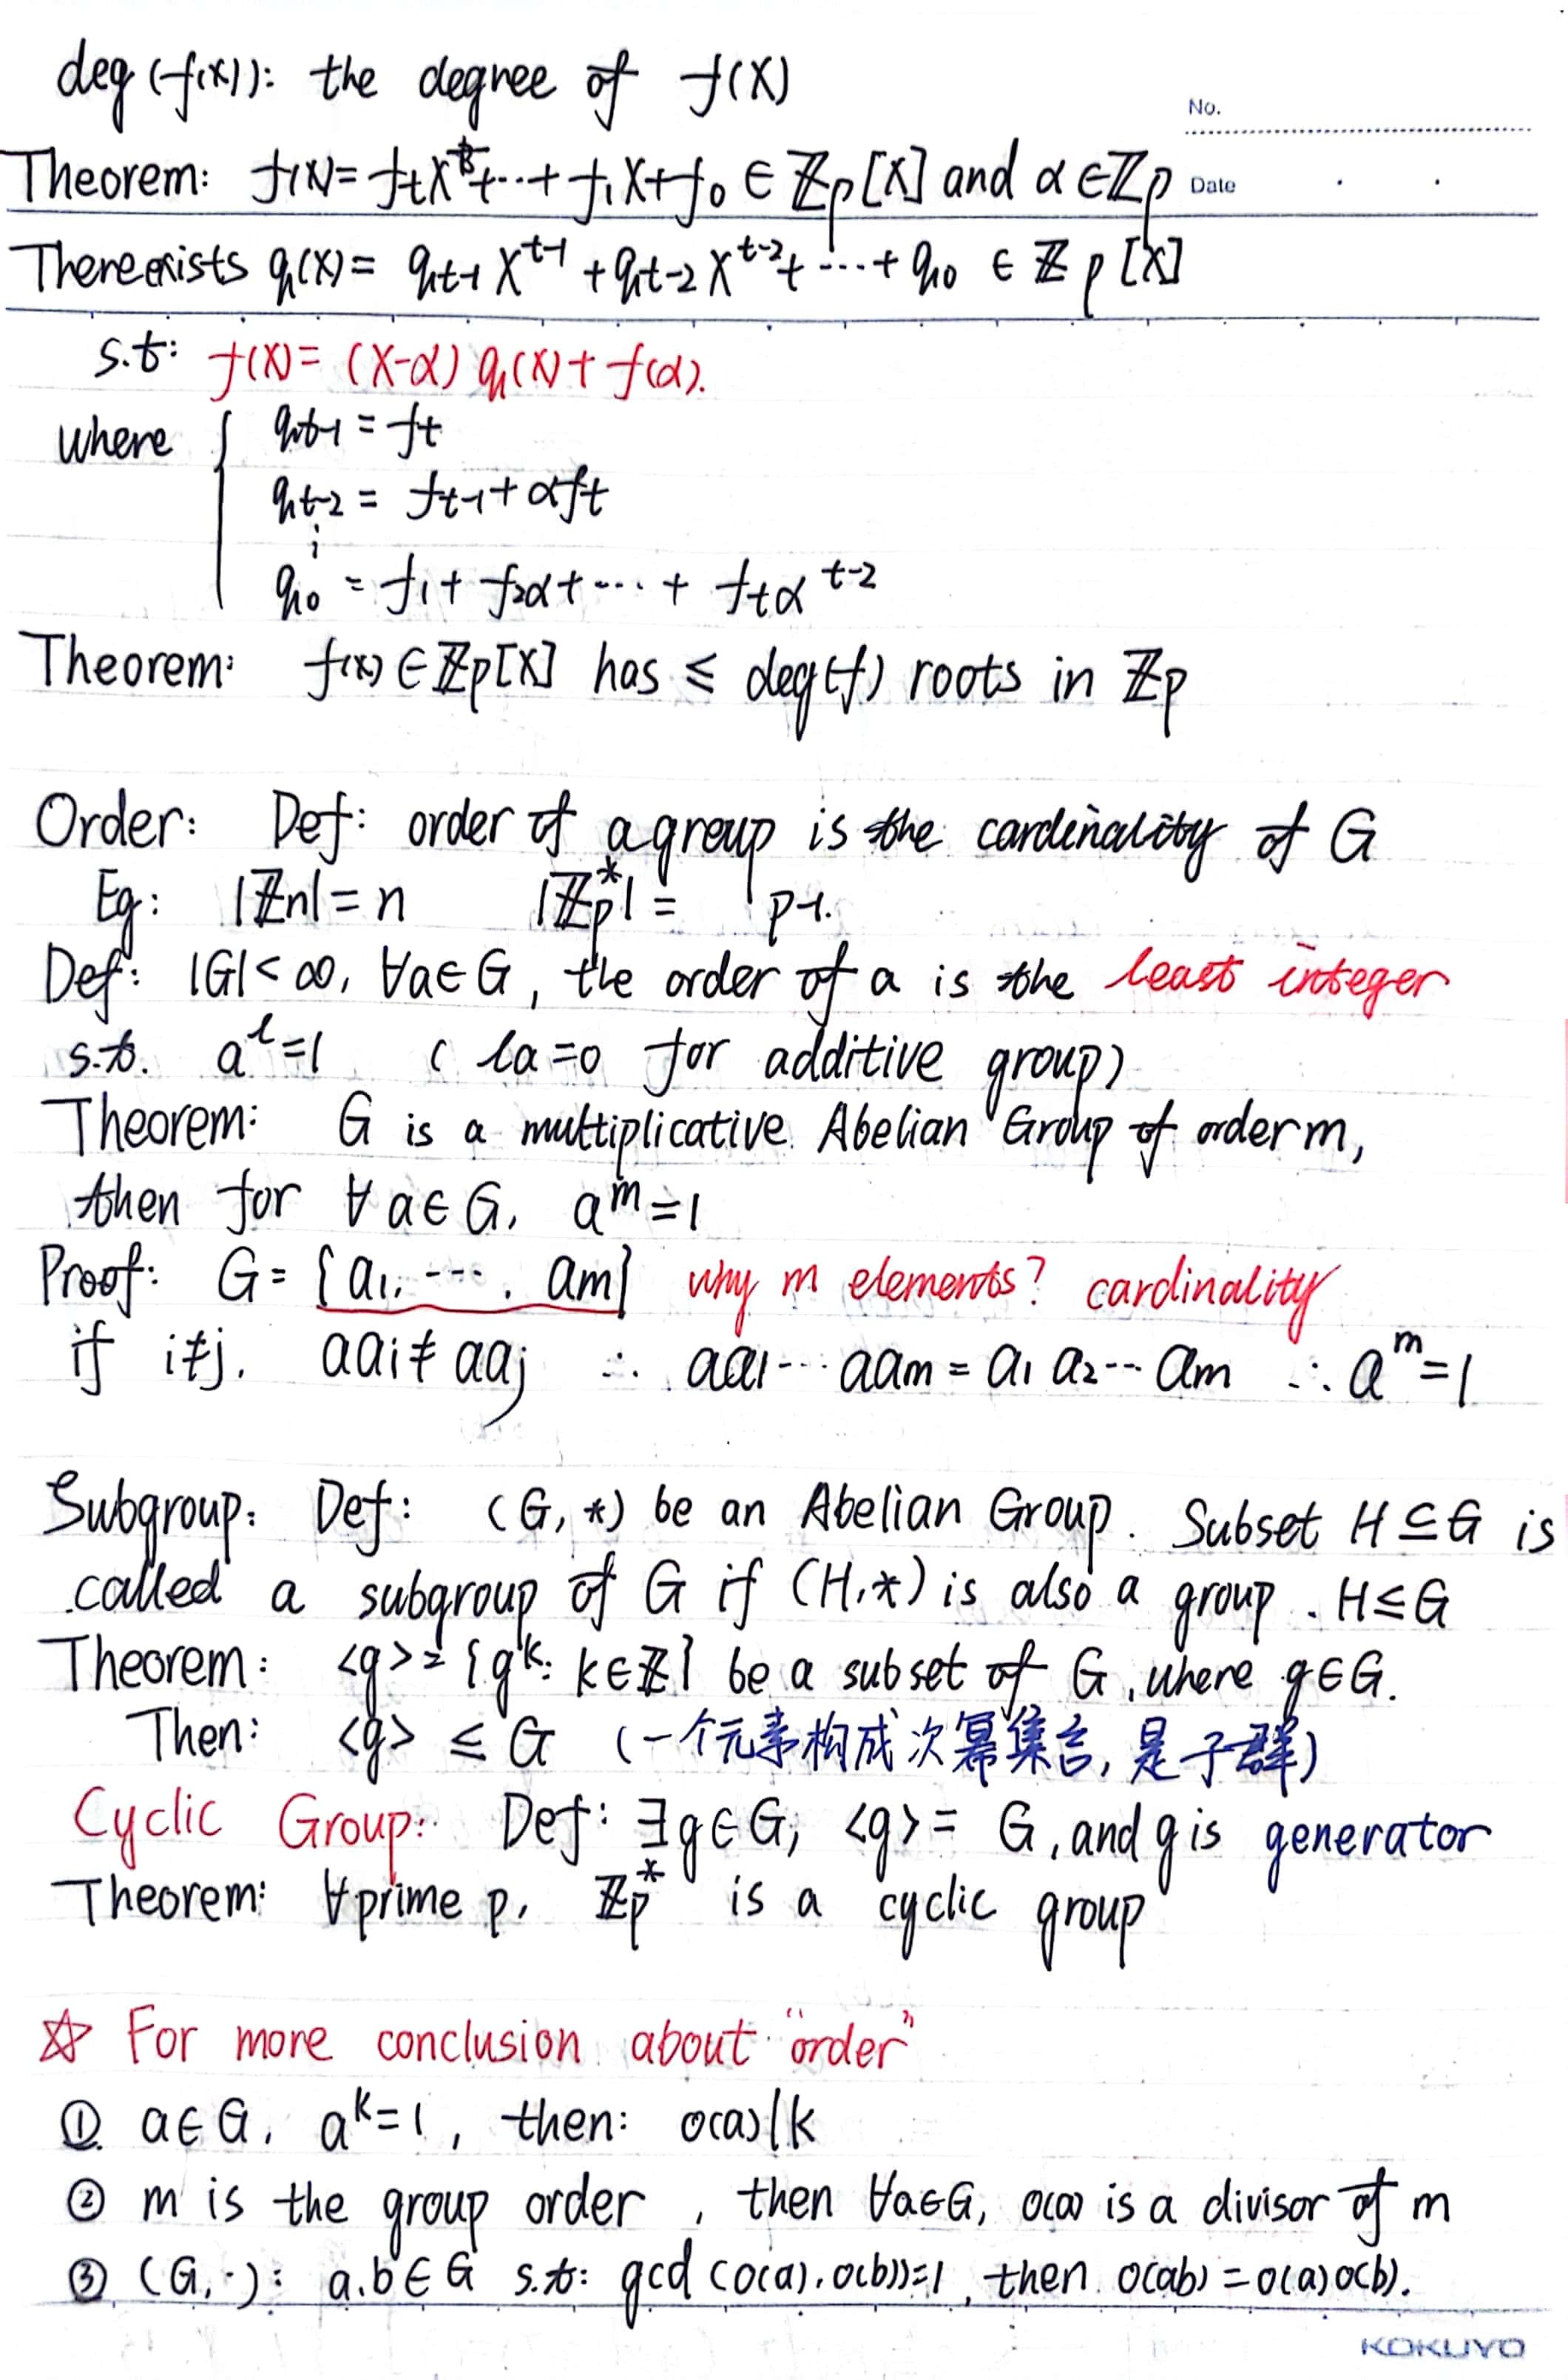 deg(f(x)): the degree of f(X)
No.
Theorem: f(X)= ftX^t+···+ f1X+f0 ∈ ℤp[X] and α∈ℤp
Date
There exists q(X)= qt-1 X^t-1 + qt-2 X^t-2 + ··· + q0 ∈ ℤp[X]
s.t: f(X)= (X-α) q(X)+ f(α).
where { qt-1 = ft
qt-2 = ft-1+ αft
⋮
q0 = f1+ f2α+ ··· + ftα^t-2
Theorem: f(x) ∈ ℤp[X] has ≤ deg(f) roots in ℤp
Order: Def: order of a group is the cardinality of G
Eg: |ℤn|= n |ℤp*| = p-1.
Def: |G|< ∞, ∀a∈G, the order of a is the least integer
s.t. a^l=1 ( la=0 for additive group)
Theorem: G is a multiplicative Abelian Group of order m,
then for ∀a∈G, a^m=1
Proof: G= {a1, ···, am} why m elements? cardinality
if i≠j, aai≠aaj ∴ aa1···aam = a1 a2··· am ∴ a^m=1
Subgroup: Def: (G,*) be an Abelian Group. Subset H⊆G is
called a subgroup of G if (H,*) is also a group. H≤G
Theorem: <g> = {g^k: k∈ℤ} be a subset of G, where g∈G.
Then: <g> ≤ G (一个元素构成次幂集合,是子群)
Cyclic Group: Def: ∃g∈G, <g> = G, and g is generator
Theorem: ∀prime p, ℤp* is a cyclic group
☆ For more conclusion about "order"
① a∈G, a^k=1, then: o(a)|k
② m is the group order, then ∀a∈G, o(a) is a divisor of m
③ (G,·): a,b∈G s.t: gcd(o(a),o(b))=1, then o(ab)=o(a)o(b).
KOKUYO